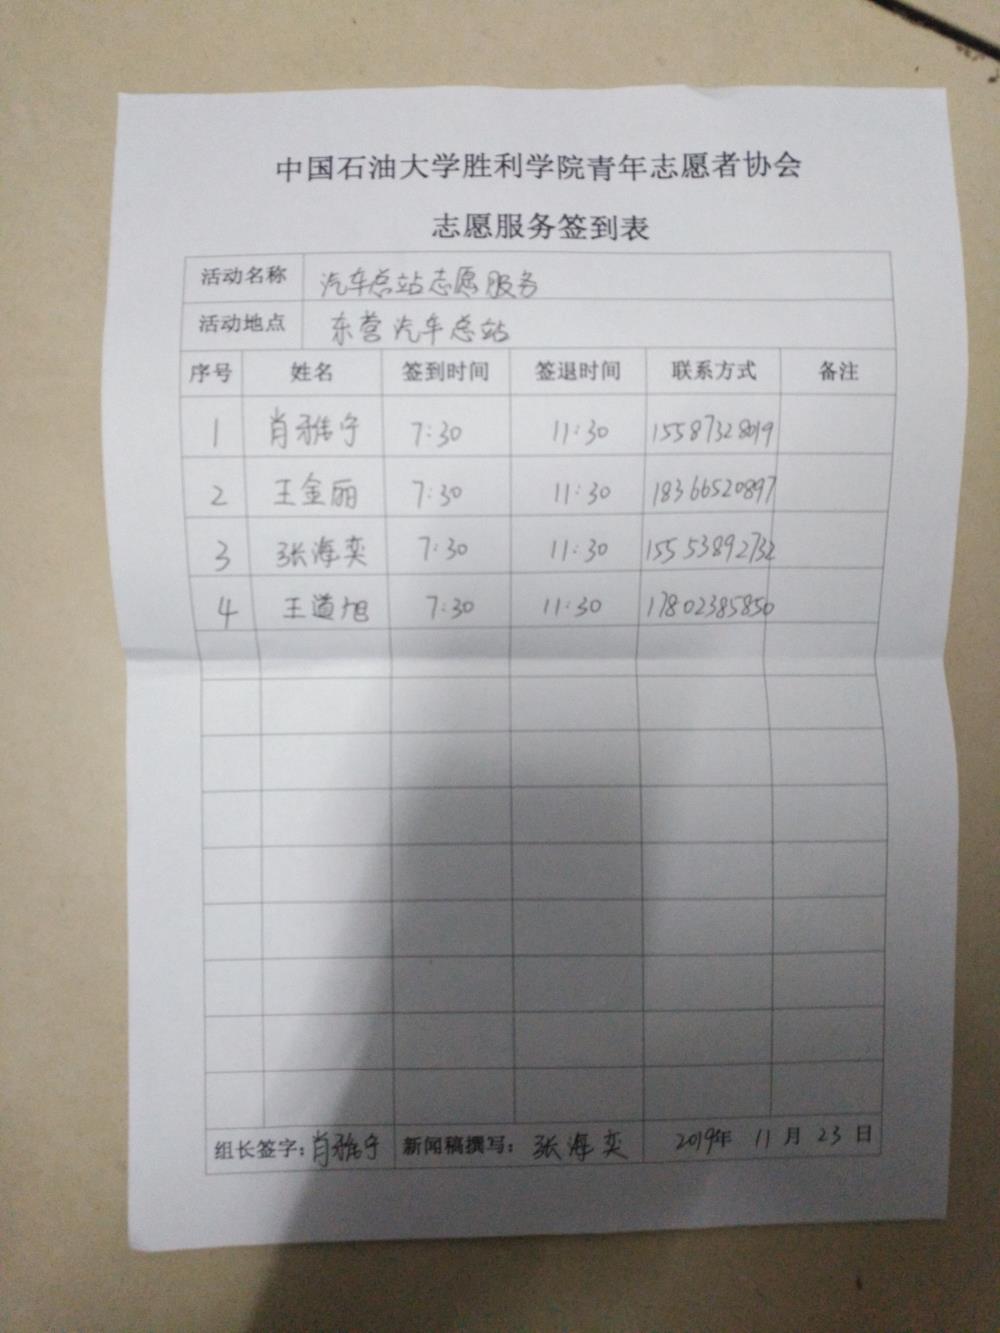 中国石油大学胜利学院青年志愿者协会
志愿服务签到表
活动名称 汽车总站志愿服务
活动地点 东营汽车总站
序号 姓名 签到时间 签退时间 联系方式 备注
1 肖雅宁 7:30 11:30 15587328019
2 王金丽 7:30 11:30 18366520897
3 张海奕 7:30 11:30 15553892732
4 王道旭 7:30 11:30 17802385850
组长签字：肖雅宁 新闻稿撰写：张海奕 2019年 11月23日